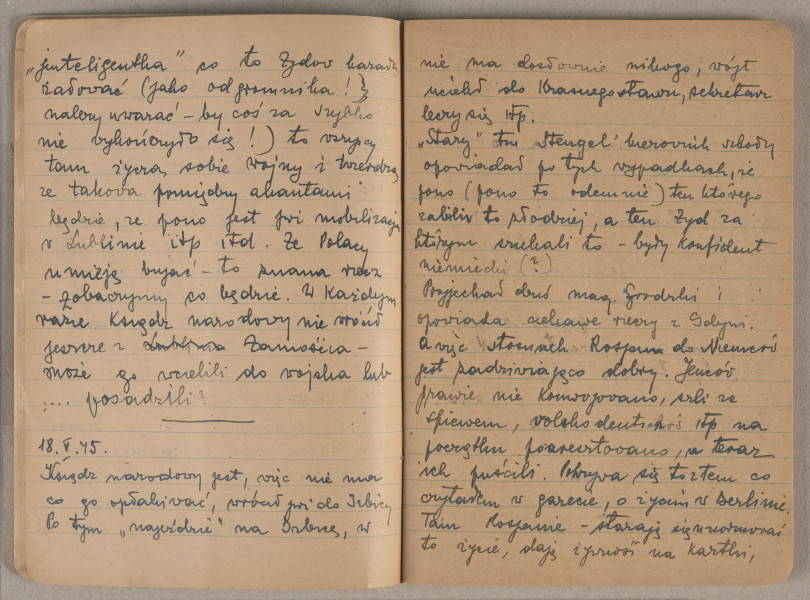 „inteligentka" co to Żydów każda
żałować (jako odgromnika!
należy uważać – by coś za szybko
nie wykończyło się!) to wszyscy
tam życzą sobie wojny i twierdzą
że takowa pomiędzy aliantami
będzie, że pono jest już mobilizacja
w Lublinie itp itd. Że Polacy
umieją bujać – to znana rzecz
– zobaczymy co będzie. W każdym
razie Ksiądz narodowy nie wrócił
jeszcze z Zamościa –
może go wcielili do wojska lub
.... posadzili?
18.V.45.
Ksiądz narodowy jest, więc nie ma
co go opłakiwać, wrócił już do Izbicy
Po tym „najeździe" na Izbicę, w
nie ma dosłownie nikogo, wójt
uciekł do Krasnegostawu, sekretarz
leczy się itp.
„Stary" ten Stengel kierownik szkoły
opowiadał po tych wypadkach, że
pono (pono to odemnie) ten którego
zabili to złodziej, a ten Żyd za
którym szukali to – były konfident
niemiecki (?)
Przyjechał dziś mag. Grodzki i
opowiada ciekawe rzeczy z Gdyni.
A więc stosunek Rosjan do Niemców
jest zadziwiająco dobry. Jeńców
prawie nie konwojowano, szli ze
śpiewem, volksdeutschów itp na
początku poaresztowano, a teraz
ich puścili. Pokrywa się to z tem co
czytałem w gazecie, o życiu w Berlinie.
Tam Rosjanie – starają się unormować
to życie, dają żywność na kartki,